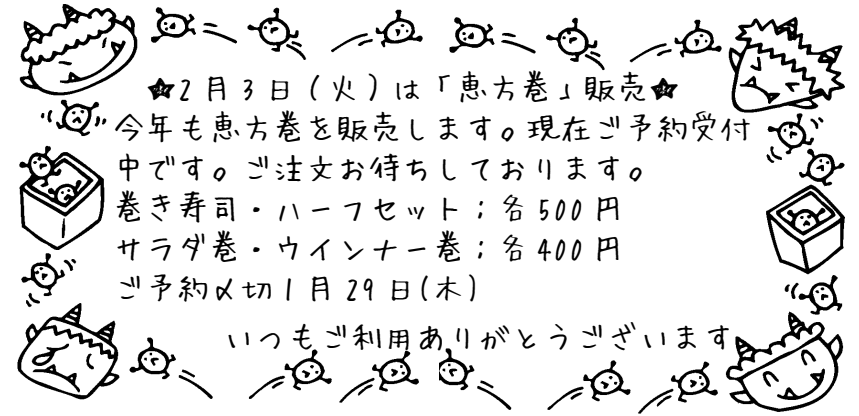 ★2月3日(火)は「恵方巻」販売★
今年も恵方巻を販売します。現在ご予約受付
中です。ご注文お待ちしております。
巻き寿司・ハーフセット；各500円
サラダ巻・ウインナー巻；各400円
ご予約〆切1月29日(木)
いつもご利用ありがとうございます